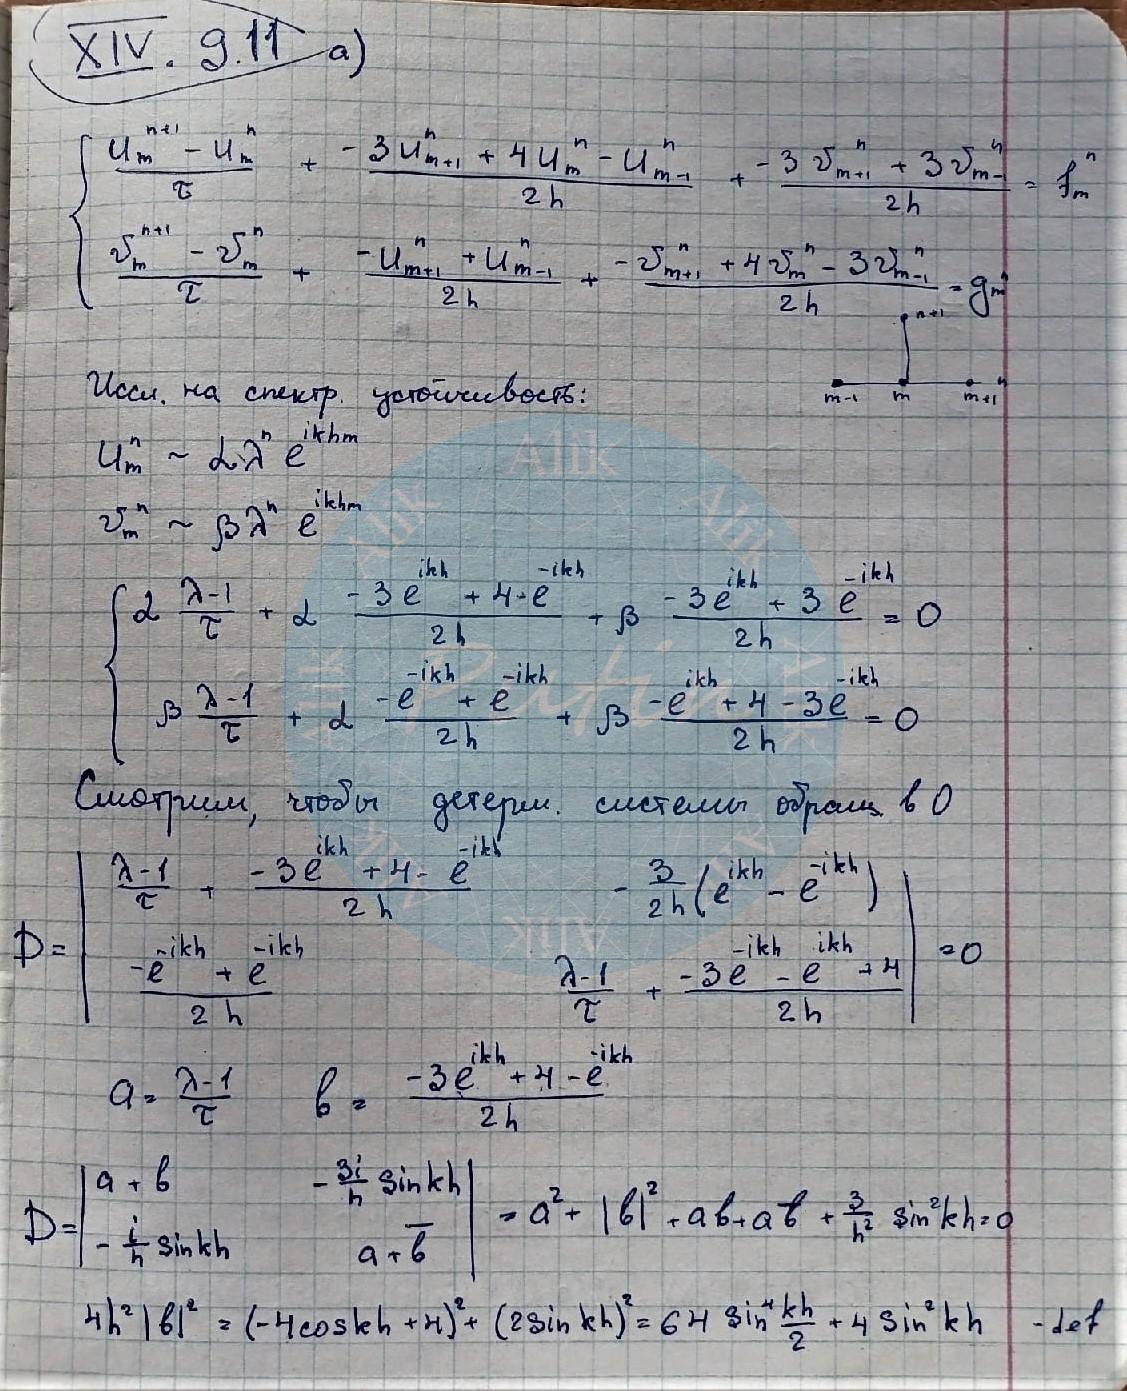 XIV. 9.11 а)
(u_m^{n+1} - u_m^n)/τ + (-3u_{m+1}^n + 4u_m^n - u_{m-1}^n)/2h + (-3v_{m+1}^n + 3v_{m-1}^n)/2h = f_m^n
(v_m^{n+1} - v_m^n)/τ + (-u_{m+1}^n + u_{m-1}^n)/2h + (-v_{m+1}^n + 4v_m^n - 3v_{m-1}^n)/2h = g_m^n
n+1
n
m-1 m m+1
Иссл. на спектр. устойчивость:
u_m^n ~ αλ^n e^{ikhm}
v_m^n ~ βλ^n e^{ikhm}
α (λ-1)/τ + α (-3e^{ikh} + 4 - e^{-ikh})/2h + β (-3e^{ikh} + 3e^{-ikh})/2h = 0
β (λ-1)/τ + α (-e^{-ikh} + e^{-ikh})/2h + β (-e^{ikh} + 4 - 3e^{-ikh})/2h = 0
Смотрим, чтобы детерм. системы обращ в 0
D = | (λ-1)/τ + (-3e^{ikh} + 4 - e^{-ikh})/2h   -3/2h (e^{ikh} - e^{-ikh}) |
| (-e^{-ikh} + e^{-ikh})/2h   (λ-1)/τ + (-3e^{-ikh} - e^{ikh} + 4)/2h | = 0
a = (λ-1)/τ   b = (-3e^{ikh} + 4 - e^{-ikh})/2h
D = | a + b   -3i/h sin kh |
| -i/h sin kh   a + b̄ | = a² + |b|² + ab + ab̄ + 3/h² sin² kh = 0
4h²|b|² = (-4cos kh + 4)² + (2 sin kh)² = 64 sin⁴ kh/2 + 4 sin² kh - def
Alik
Alik
Alik
Alik
Alik
Alik
Alik
Alik
Putin